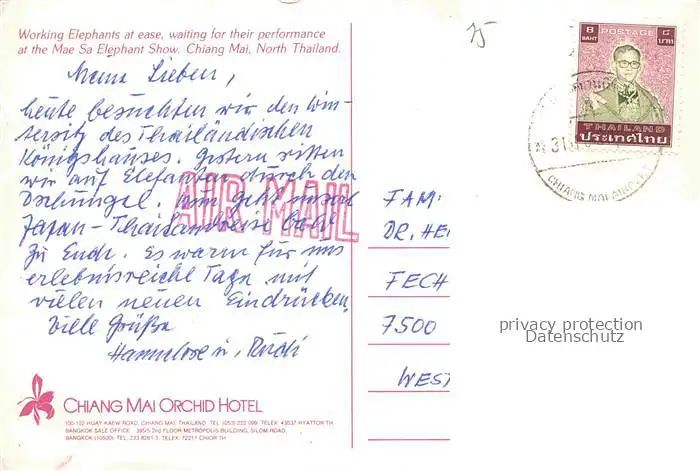 Working Elephants at ease, waiting for their performance
at the Mae Sa Elephant Show. Chiang Mai, North Thailand.
Meine Lieben,
heute besuchten wir den Win-
tersitz des Thailändischen
Königshauses. Gestern ritten
wir auf Elefanten durch den
Dschungel. Nun geht unsere
Japan-Thailandreise bald
zu Ende. Es waren für uns
erlebnisreiche Tage mit
vielen neuen Eindrücken.
Viele Grüße
Hannelore u. Rudi
AIR MAIL
CHIANG MAI ORCHID HOTEL
100-102 HUAY KAEW ROAD, CHIANG MAI, THAILAND TEL. (053) 222 099 TELEX: 43537 HYATTOR TH
BANGKOK SALE OFFICE: 395/5 2nd FLOOR METROPOLIS BUILDING, SILOM ROAD,
BANGKOK (10500). TEL. 233 8261-3. TELEX: 72211 CHIOR TH
8
BAHT
POSTAGE
๘
บาท
THAILAND
ประเทศไทย
31
CHIANG MAI
FAM.
DR. HE
FECH
7500
WEST
privacy protection
Datenschutz